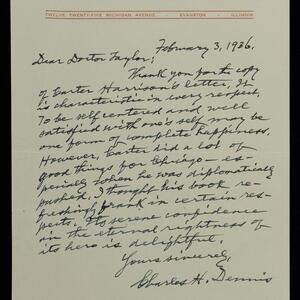 TWELVE TWENTY-FIVE MICHIGAN AVENUE · EVANSTON · ILLINOIS
February 3, 1936.
Dear Doctor Taylor:
Thank you for the copy
of Carter Harrison's letter. It
is characteristic in every respect.
To be self centered and well
satisfied with one's self may be
one form of complete happiness.
However, Carter did a lot of
good things for Chicago – es-
pecially when he was diplomatically
pushed. I thought his book re-
freshingly frank in certain res-
pects. Its serene confidence
in the eternal rightness of
its hero is delightful.
Yours sincerely,
Charles H. Dennis